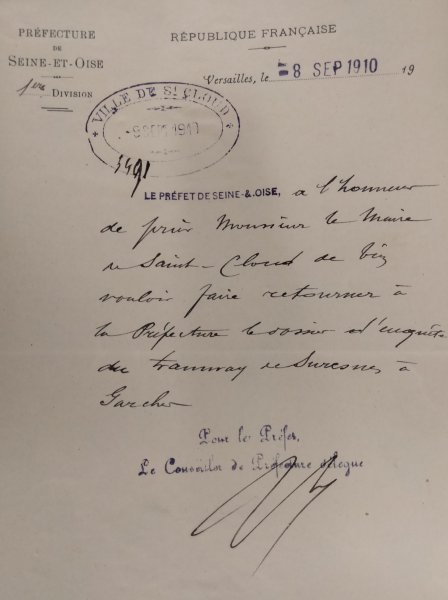 PRÉFECTURE
DE
SEINE-ET-OISE
1ère DIVISION
RÉPUBLIQUE FRANÇAISE
Versailles, le 8 SEP 1910 19
* VILLE DE St CLOUD *
9 SEPT 1910
3491
LE PRÉFET DE SEINE-&-OISE, a l'honneur
de prier Monsieur le Maire
de Saint-Cloud de bien
vouloir faire retourner à
la Préfecture le dossier d'enquête
du tramway de Suresnes à
Garches
Pour le Préfet,
Le Conseiller de Préfecture délégué